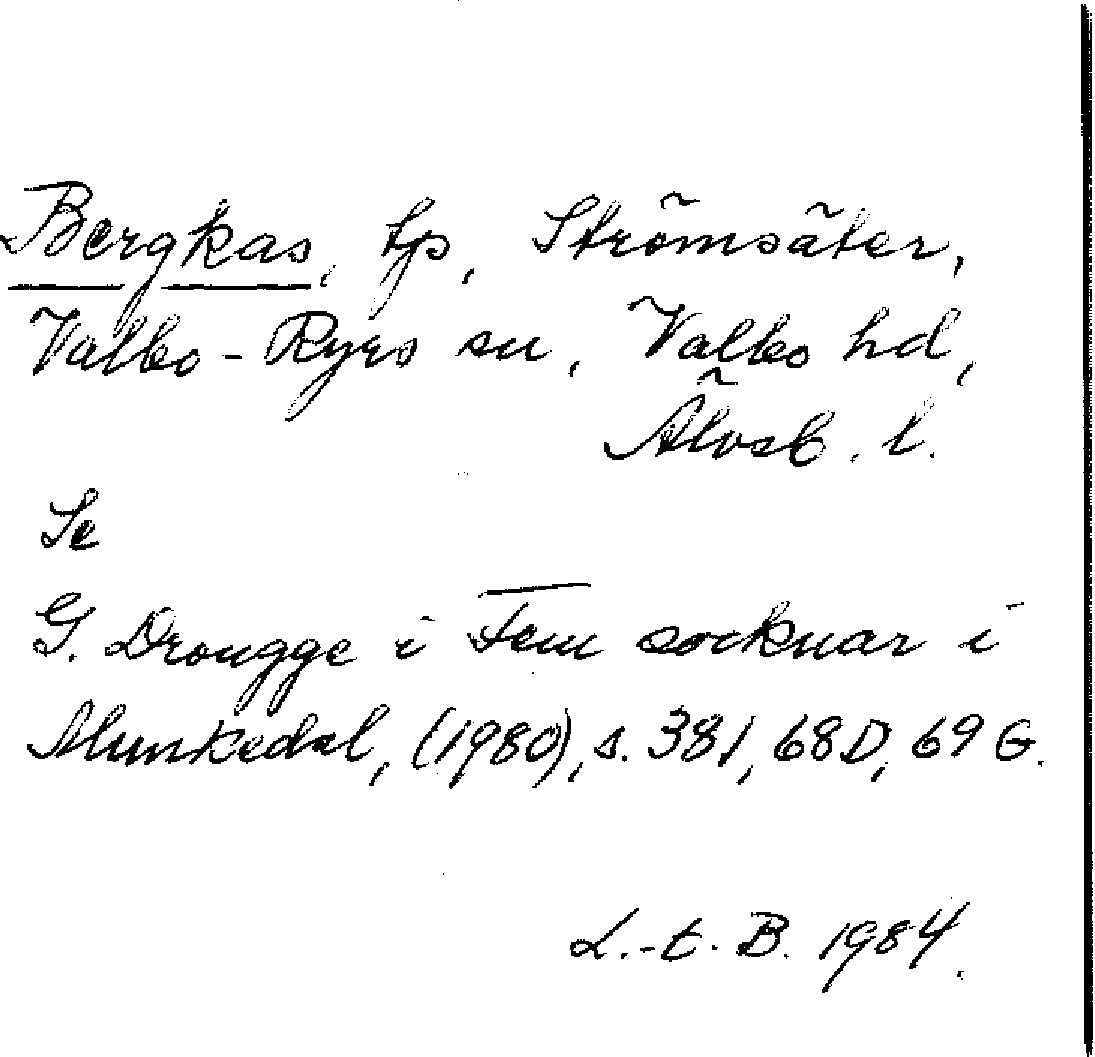 Bergkas, tp, Strömsäter,
Valbo-Ryrs sn, Valbo hd,
Älvsb. l.
Se
G. Drougge i Fem socknar i
Munkedal, (1980), s. 381, 68D, 69 G.
L.-t. B. 1984.